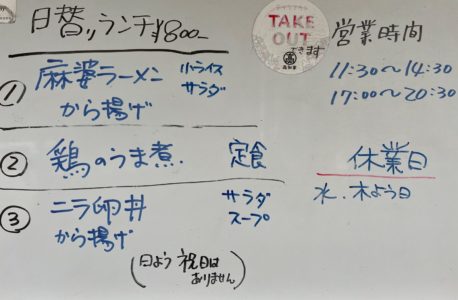 日替りランチ ¥800-
① 麻婆ラーメン 小ライス
から揚げ サラダ
② 鶏のうま煮. 定食
③ ニラ卵丼 サラダ
から揚げ スープ
(日よう 祝日は
ありません)
TAKE
OUT
できます
営業時間
11:30〜14:30
17:00〜20:30
休業日
水、木よう日